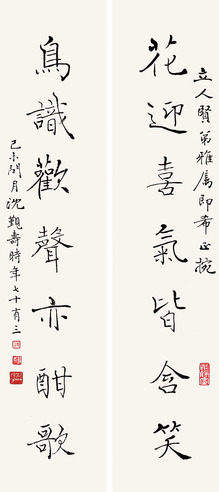 立人賢弟雅屬即希正捥
花迎喜氣皆含笑
鳥識歡聲亦酣歌
己未閏月沈覲壽時年七十有三